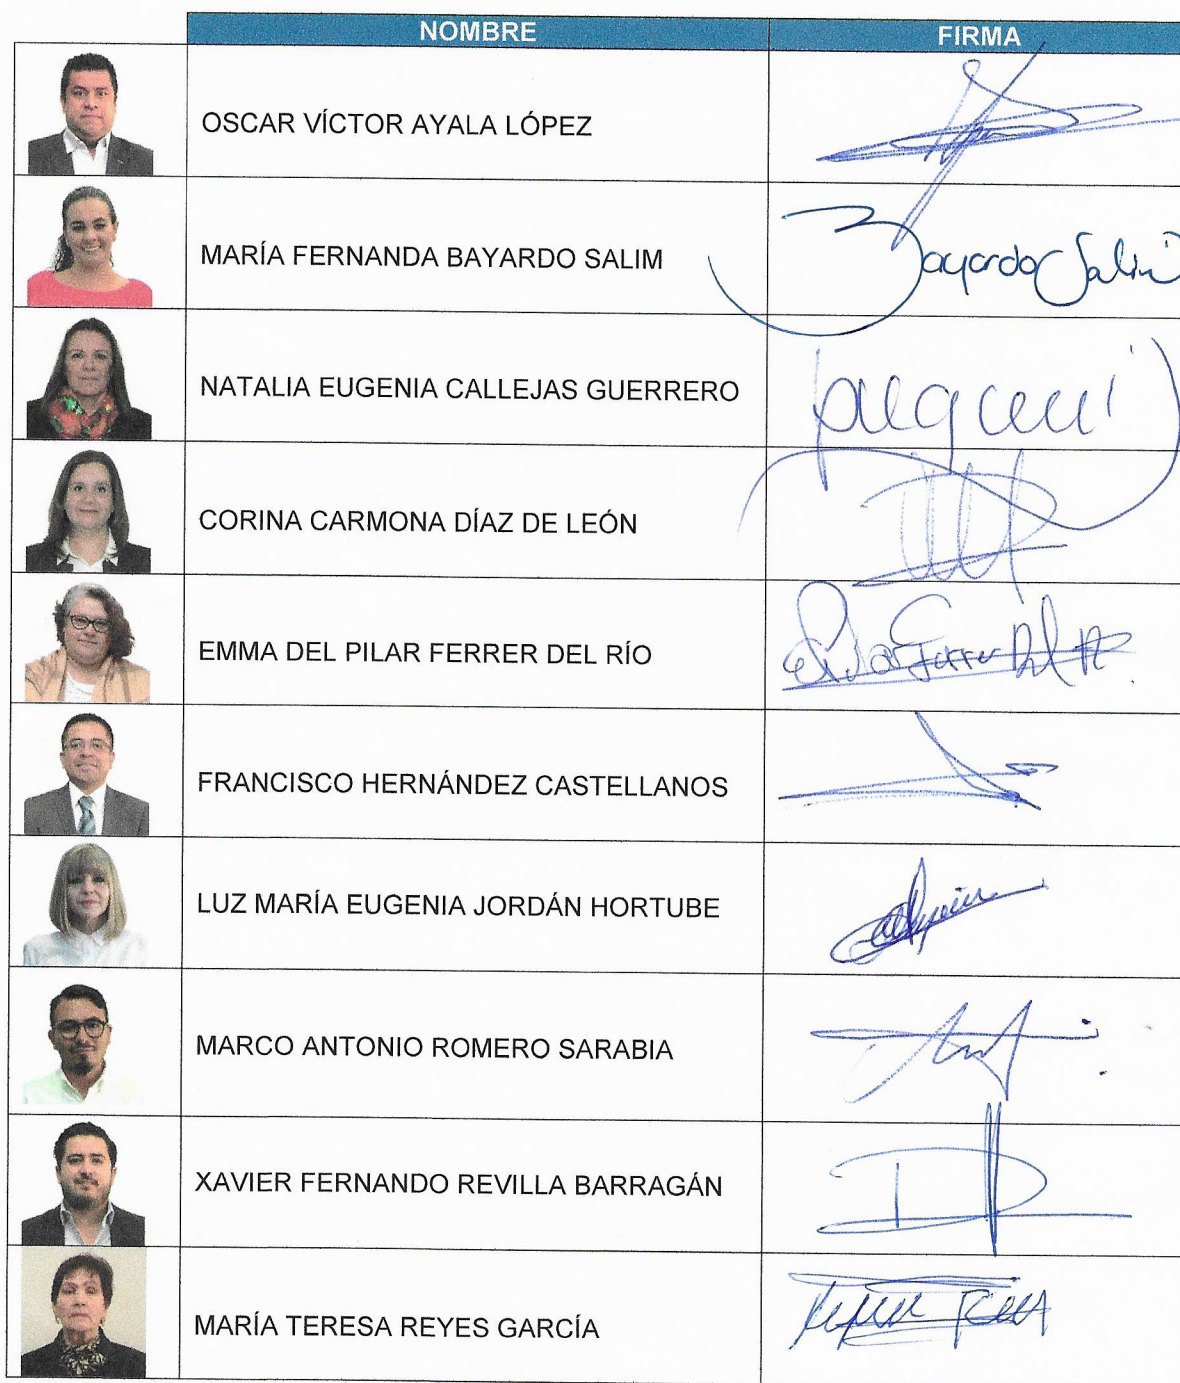 NOMBRE FIRMA
OSCAR VÍCTOR AYALA LÓPEZ
MARÍA FERNANDA BAYARDO SALIM Bayardo Salim
NATALIA EUGENIA CALLEJAS GUERRERO
CORINA CARMONA DÍAZ DE LEÓN
EMMA DEL PILAR FERRER DEL RÍO Pilar Ferrer Del R.
FRANCISCO HERNÁNDEZ CASTELLANOS
LUZ MARÍA EUGENIA JORDÁN HORTUBE
MARCO ANTONIO ROMERO SARABIA
XAVIER FERNANDO REVILLA BARRAGÁN
MARÍA TERESA REYES GARCÍA